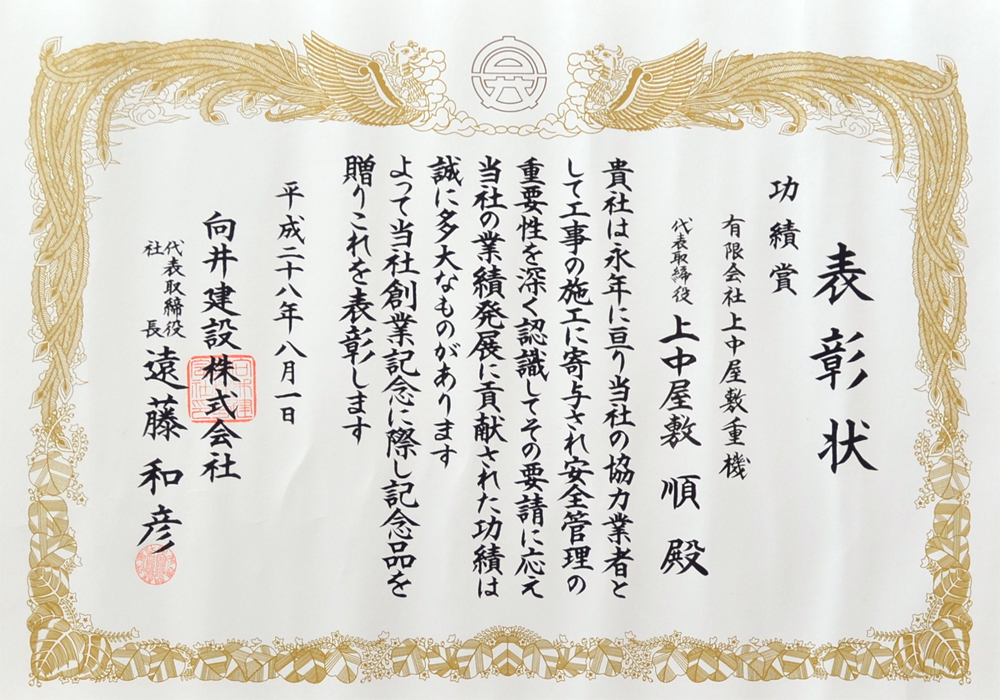 表彰状
功績賞
有限会社上中屋敷重機
代表取締役 上中屋敷 順 殿
貴社は永年に亘り当社の協力業者と
して工事の施工に寄与され安全管理の
重要性を深く認識しその要請に応え
当社の業績発展に貢献された功績は
誠に多大なものがあります
よって当社創業記念に際し記念品を
贈りこれを表彰します
平成二十八年八月一日
向井建設株式会社
代表取締役
社長 遠藤 和彦